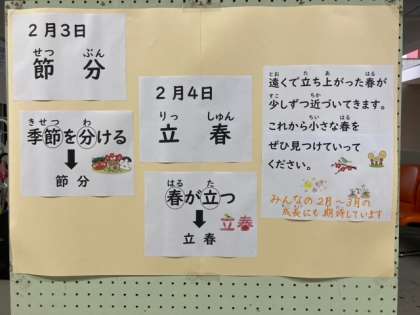 2月3日
せつ ぶん
節 分
きせつ わ
季節を分ける
節 分
2月4日
りっ しゅん
立 春
はる た
春が立つ
立 春
立春
とお た あ はる
遠くで立ち上がった春が
すこ ちか
少しずつ近づいてきます。
ちい はる
これから小さな春を
ぜひ見つけていって
ください。
みんなの2月〜3月の
成長にも期待しています